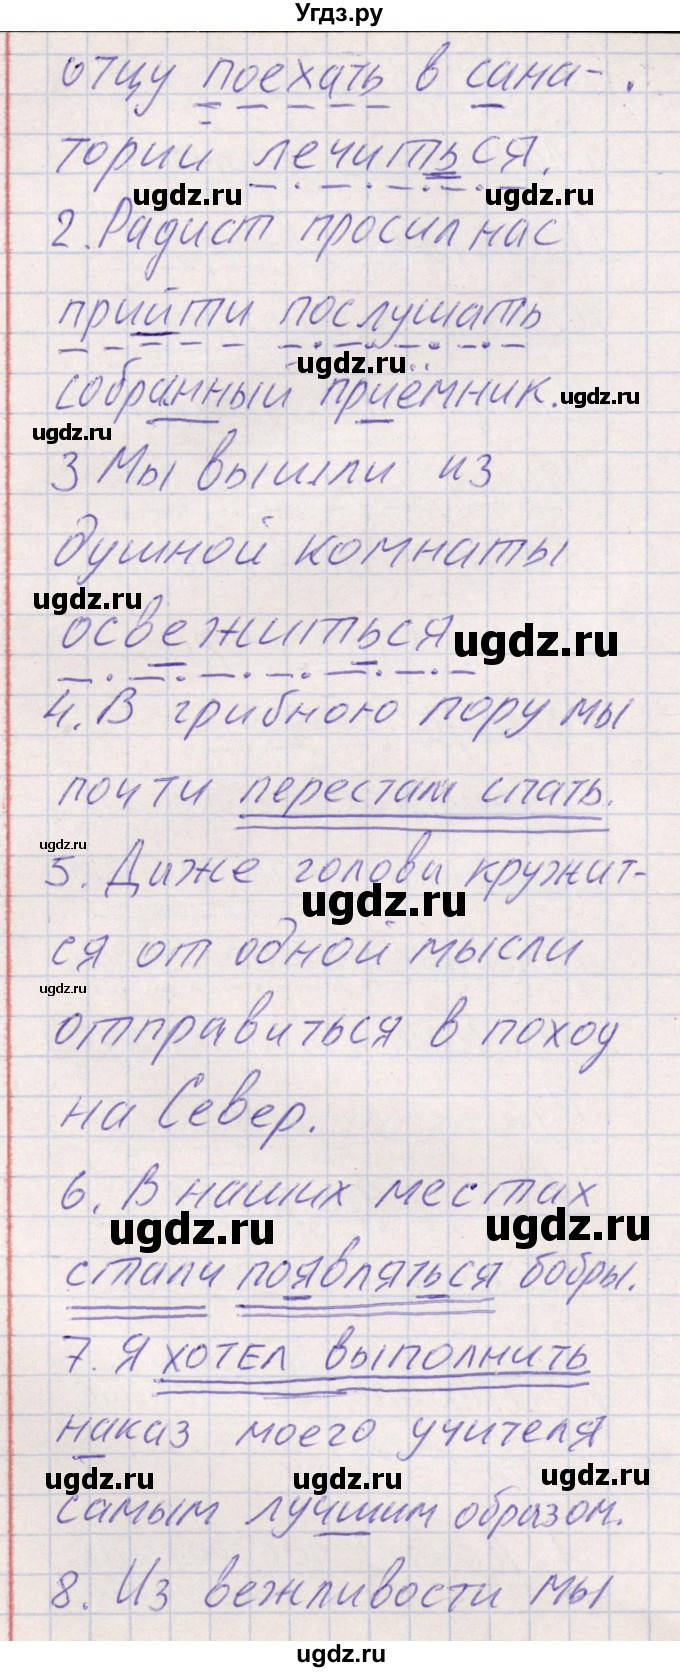 Угдз.ру
отцу поехать в сана-
торий лечиться.
ugdz.ru ugdz.ru
2. Радист просил нас
прийти послушать
ugdz.ru
собранный приёмник. ugdz.ru
ugdz.ru
3 Мы вышли из
душной комнаты
ugdz.ru
освежиться ugdz.ru
4. В грибною пору мы
почти перестам спать.
ugdz.ru
5. Даже голова кружит-
ugdz.ru
ся от одной мысли
ugdz.ru
отправиться в поход
на Север.
6. В наших местах
ugdz.ru ugdz.ru
стали появляться бобры.
7. Я хотел выполнить
наказ моего учителя
ugdz.ru ugdz.ru ugdz.ru
самым лучшим образом.
8. Из вежливости мы
ugdz.ru